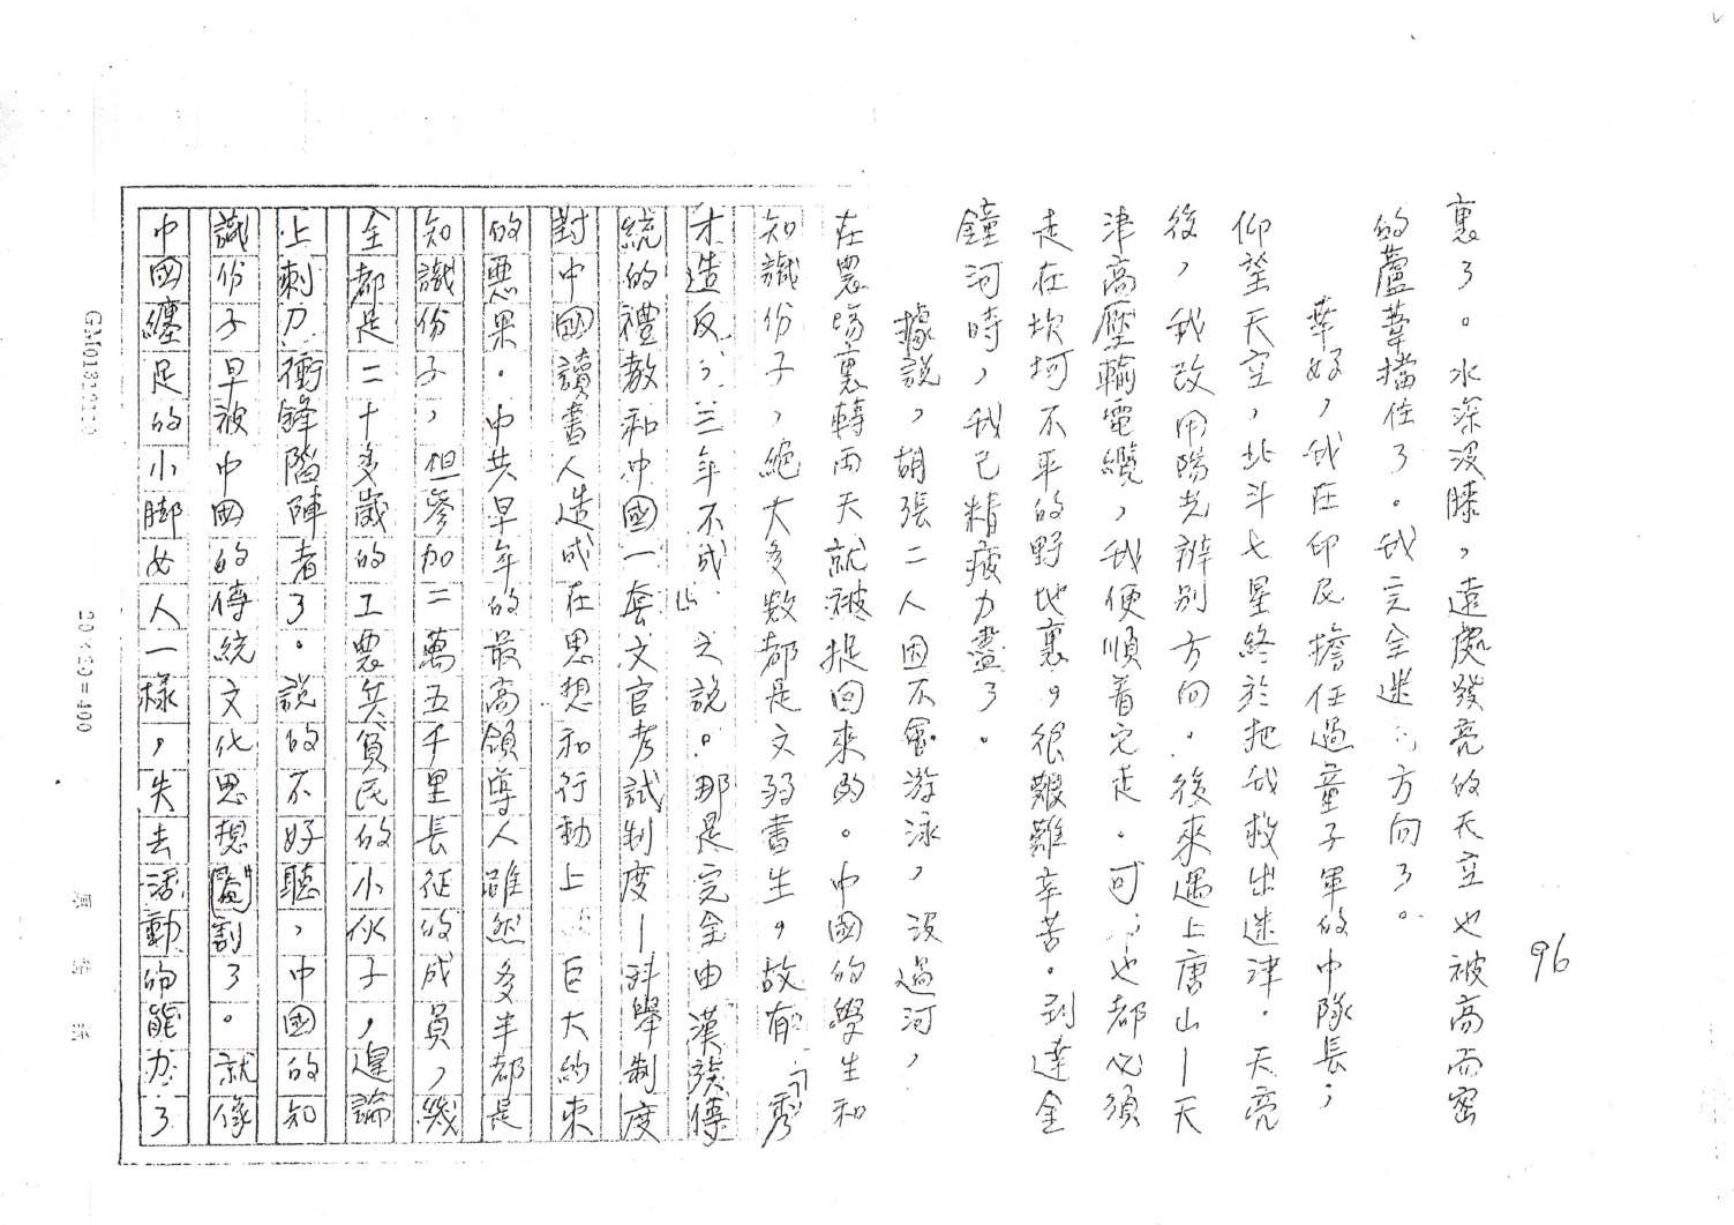 96
裏了。水深沒膝，遠處發亮的天空也被高而密
的蘆葦擋住了。我完全迷方向了。
幸好，我在印尼擔任過童子軍的中隊長；
仰望天空，北斗七星終於把我救出迷津。天亮
後，我改用陽光辨別方向。後來遇上唐山—天
津高壓輸電纜，我便順着它走。可也都必須
走在坎坷不平的野地裏，很艱難辛苦。到達金
鐘河時，我已精疲力盡了。
據說，胡張二人因不會游泳，沒過河，
在農場裏轉兩天就被捉回來的。中國的學生和
知識份子，絕大多數都是文弱書生，故有「秀
才造反，三年不成」之說。那是完全由漢族傳
統的禮教和中國一套文官考試制度—科舉制度
對中國讀書人造成在思想和行動上巨大約束
的惡果。中共早年的最高領導人雖然多半都是
知識份子，但參加二萬五千里長征的成員，幾
全都是二十多歲的工農兵貧民的小伙子，遑論
上刺刀衝鋒陷陣者了。說的不好聽，中國的知
識份子早被中國的傳統文化思想閹割了。就像
中國纏足的小脚女人一樣，失去活動的能力了
20×20=400